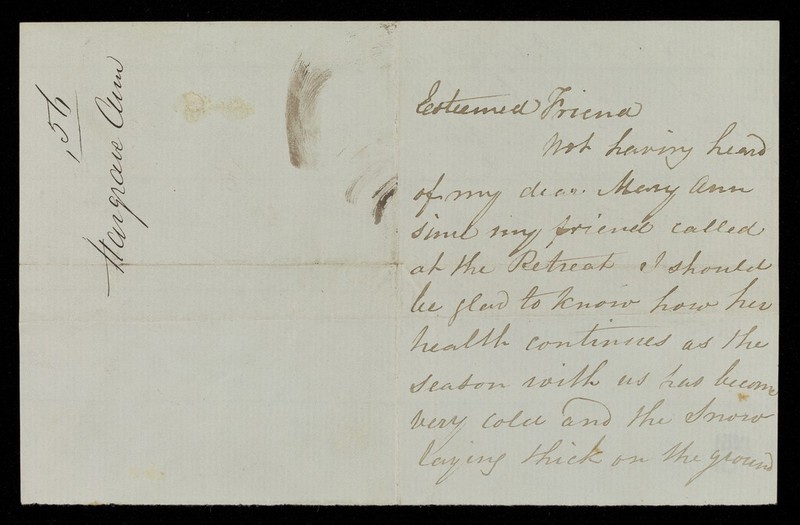 ,56
Hargrave Ann
Esteemed Friend
Not having heard
of my dear Mary Ann
since my friend called
at the Retreat I should
be glad to know how her
health continues as the
season with us has become
very cold and the Snow
laying thick on the ground